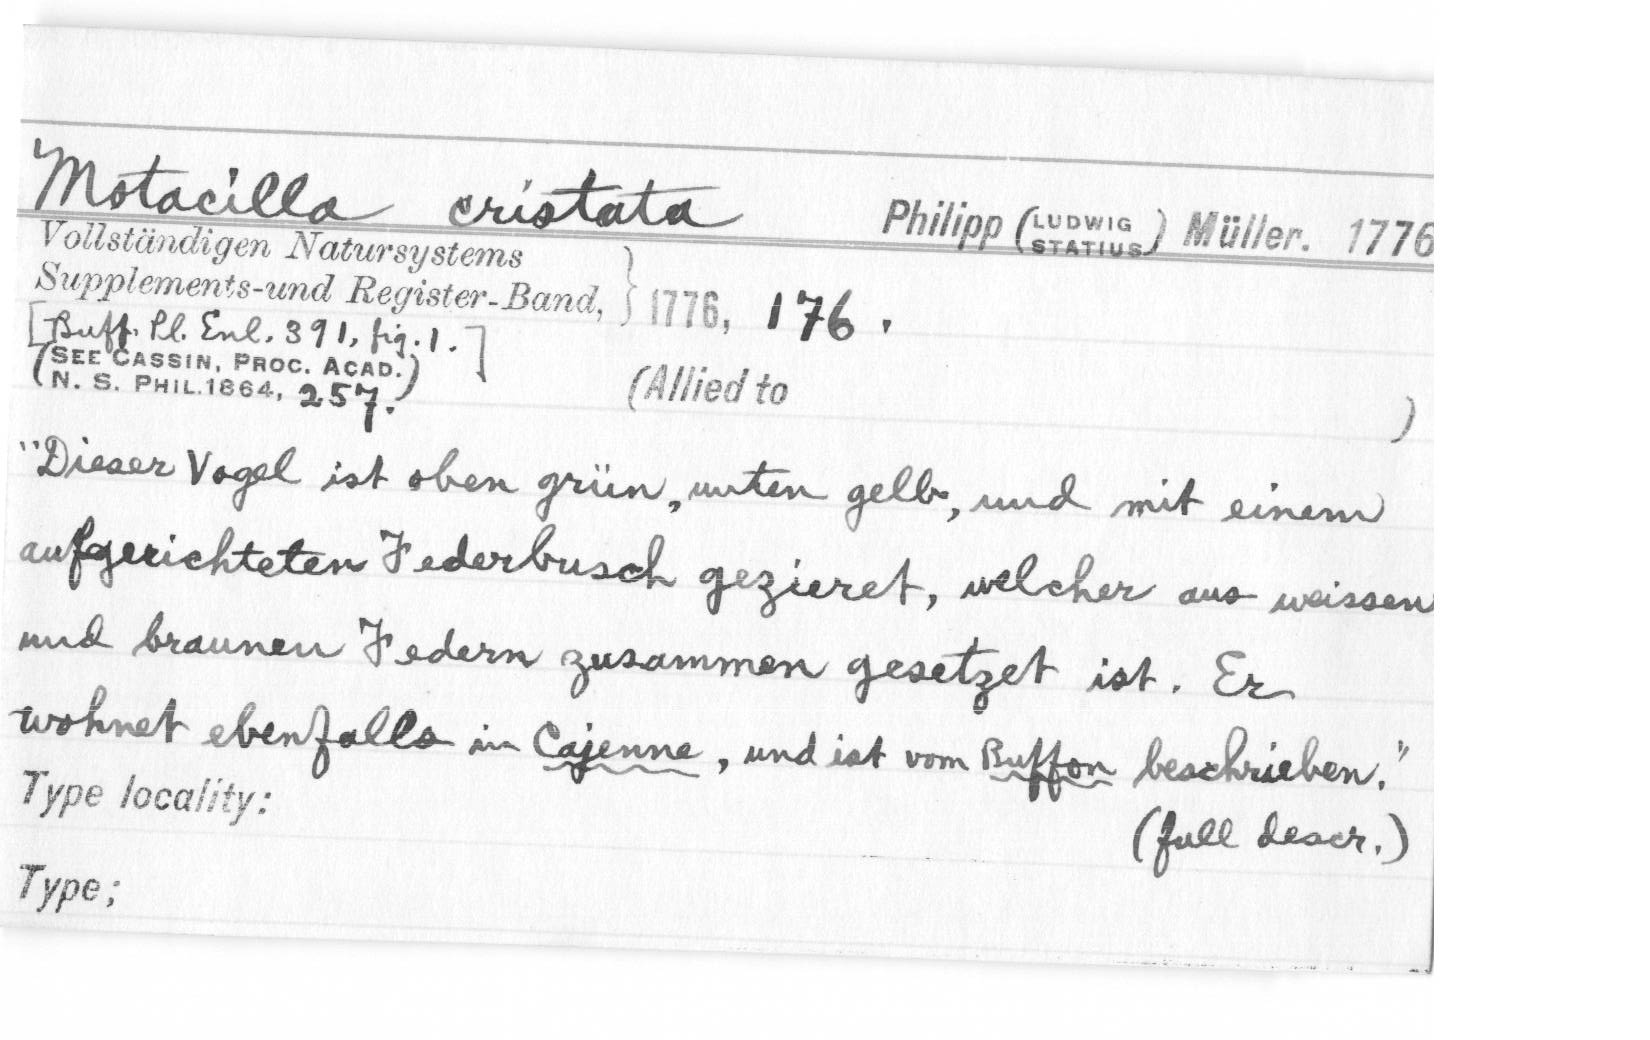 Motacilla cristata Philipp (LUDWIG STATIUS) Müller. 1776
Vollständigen Natursystems
Supplements-und Register-Band, } 1776, 176.
[Buff. Pl. Enl. 391, fig. 1.]
(SEE CASSIN, PROC. ACAD.
N. S. PHIL. 1864, 257.)
(Allied to )
"Dieser Vogel ist oben grün, unten gelb, und mit einem
aufgerichteten Federbusch gezieret, welcher aus weissen
und braunen Federn zusammen gesetzet ist. Er
wohnet ebenfalls in Cajenne, und ist vom Buffon beschrieben."
(full descr.)
Type locality:
Type;